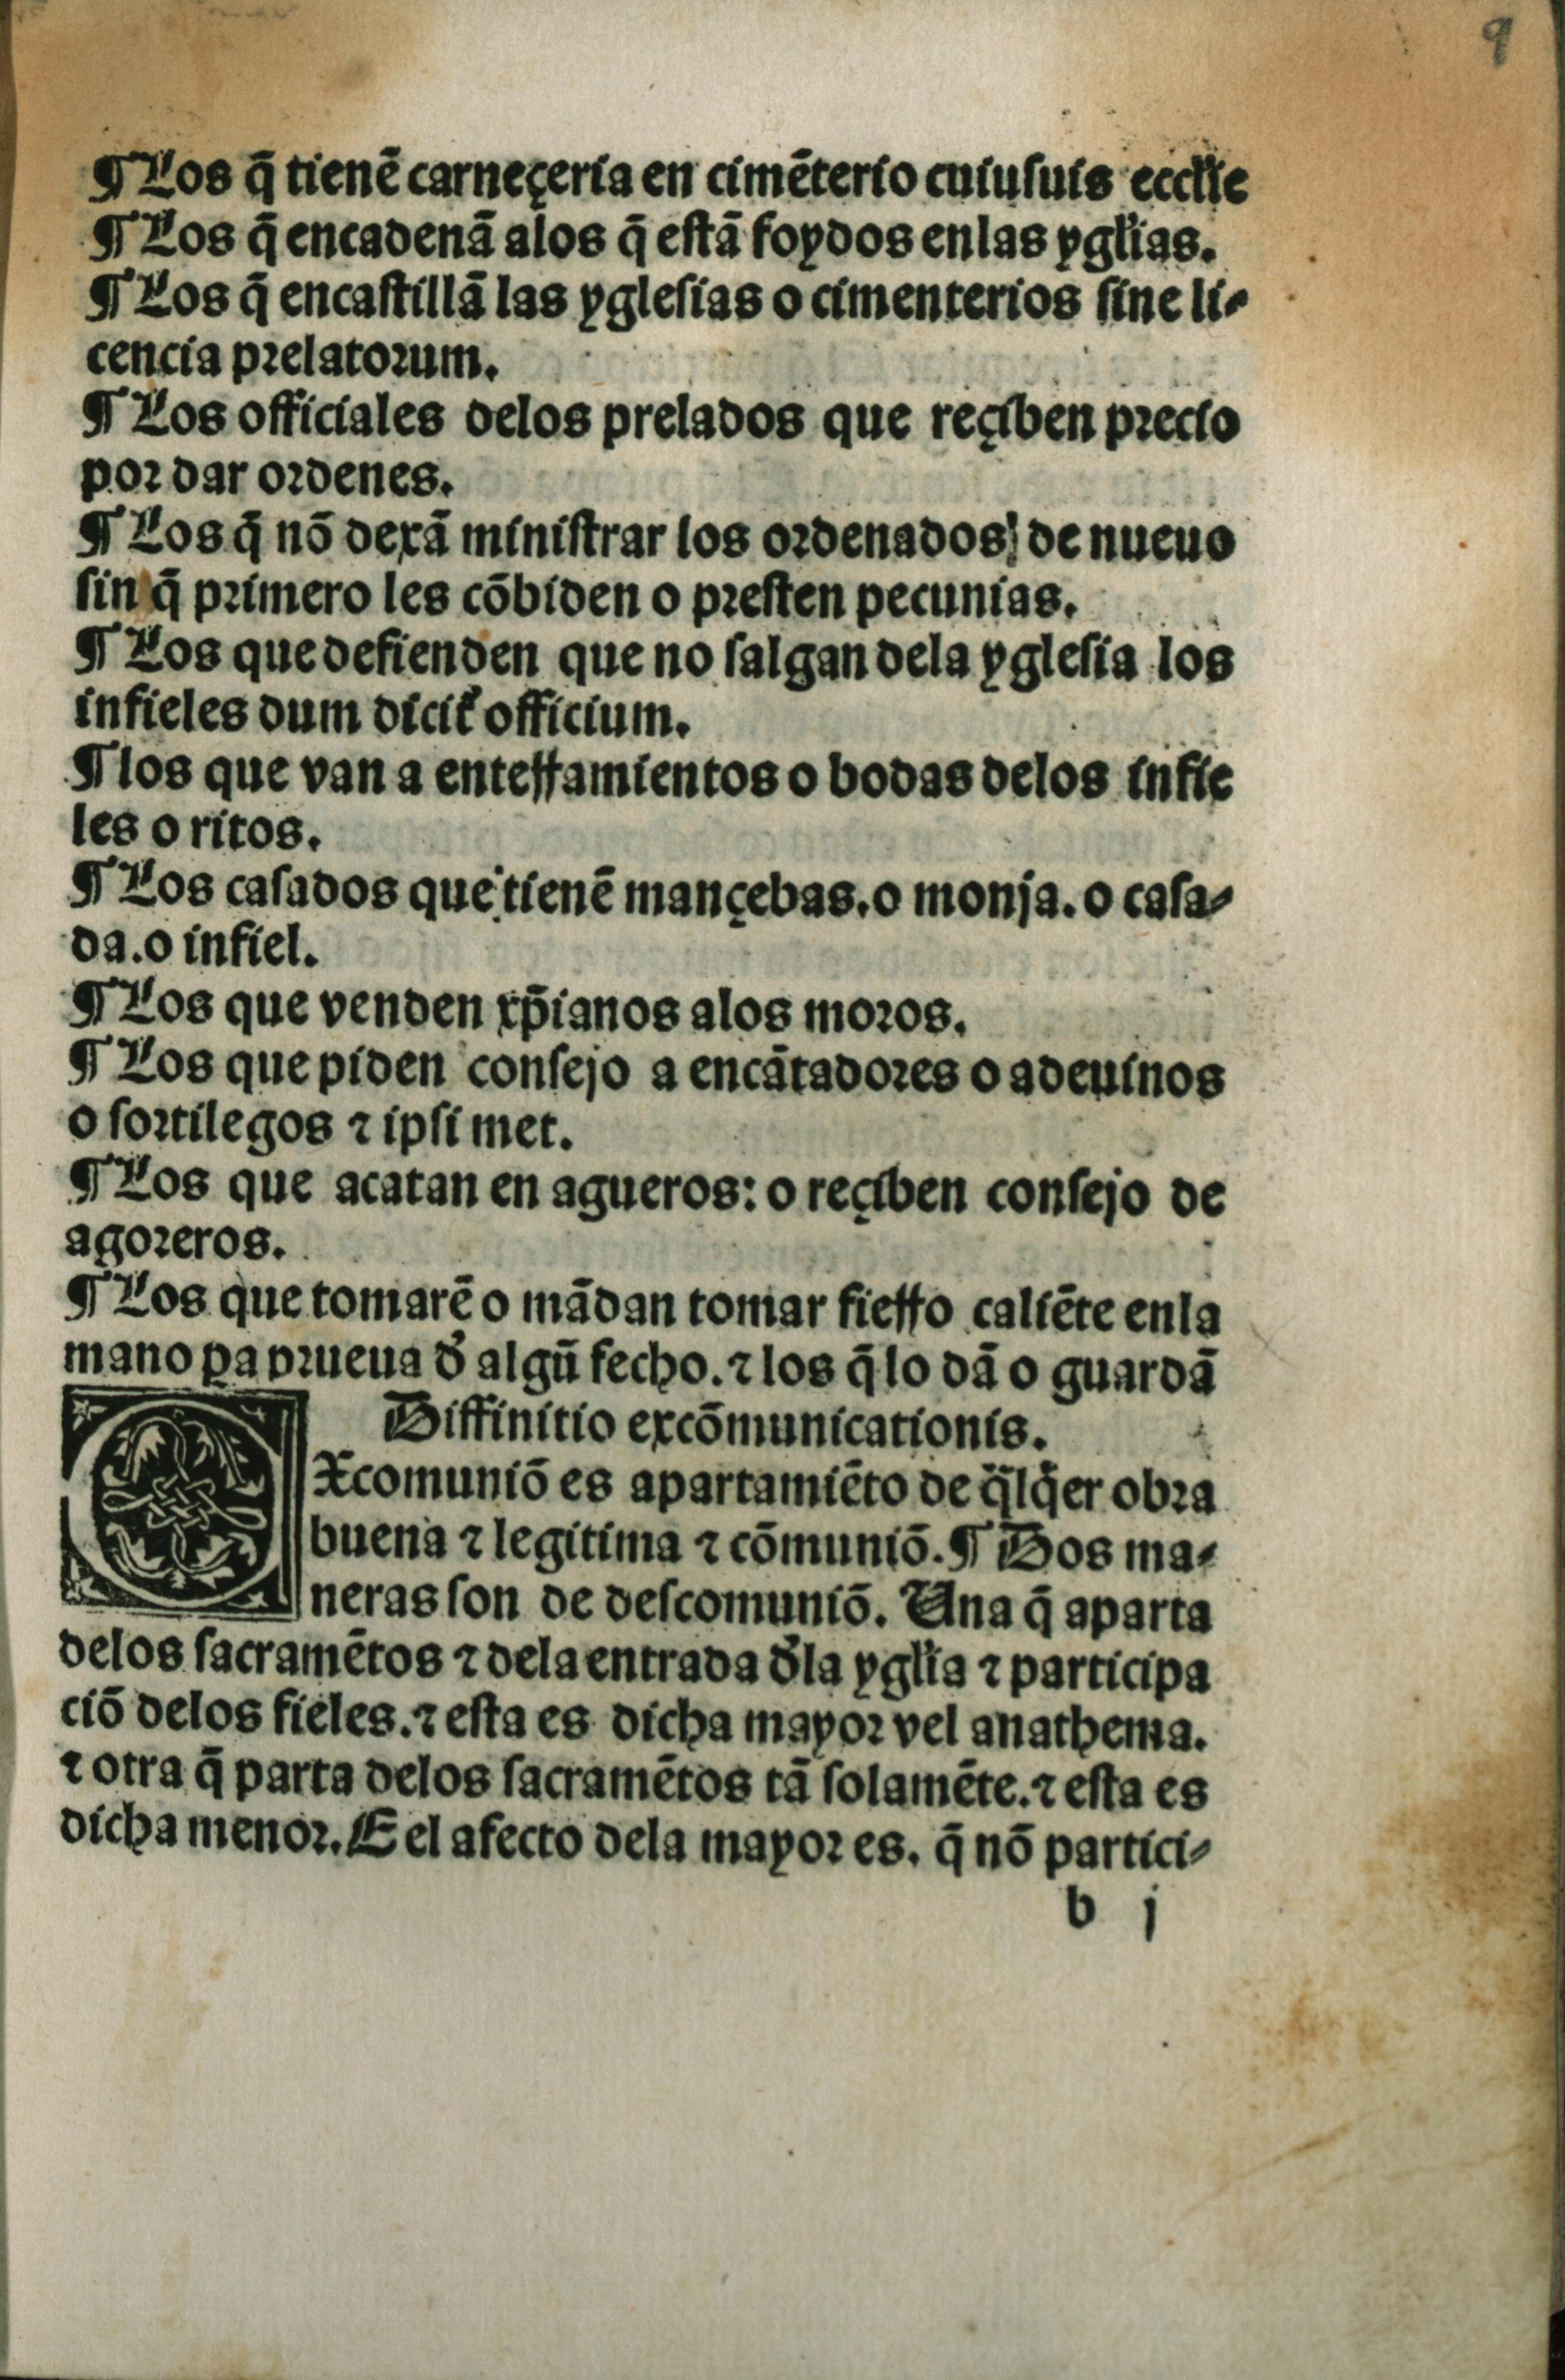 9
¶ Los q̄ tienē carneçeria en cimēterio cuiusuis eccl'ie
¶ Los q̄ encadenā alos q̄ estā foydos enlas ygl'ias.
¶ Los q̄ encastillā las yglesias o cimenterios sine li-
cencia prelatorum.
¶ Los officiales delos prelados que reçiben precio
por dar ordenes.
¶ Los q̄ nō dexā ministrar los ordenados de nueuo
sin q̄ primero les cōbiden o presten pecunias.
¶ Los que defienden que no salgan dela yglesia los
infieles dum dicit' officium.
¶ los que van a enterramientos o bodas delos infie
les o ritos.
¶ Los casados que tienē mançebas. o monja. o casa-
da. o infiel.
¶ Los que venden xp̄ianos alos moros.
¶ Los que piden consejo a encātadores o adeuinos
o sortilegos ⁊ ipsi met.
¶ Los que acatan en agueros: o reçiben consejo de
agoreros.
¶ Los que tomarē o mādan tomar fierro caliēte enla
mano ꝑa prueua d' algū fecho. ⁊ los q̄ lo dā o guardā
Diffinitio excōmunicationis.
EXcomuniō es apartamiēto de q̄lq̄er obra
buena ⁊ legitima ⁊ cōmuniō. ¶ Dos ma-
neras son de descomuniō. Una q̄ aparta
delos sacramētos ⁊ dela entrada d'la ygl'ia ⁊ participa
ciō delos fieles. ⁊ esta es dicha mayor vel anathema.
⁊ otra q̄ parta delos sacramētos tā solamēte. ⁊ esta es
dicha menor. E el afecto dela mayor es. q̄ nō partici-
b j